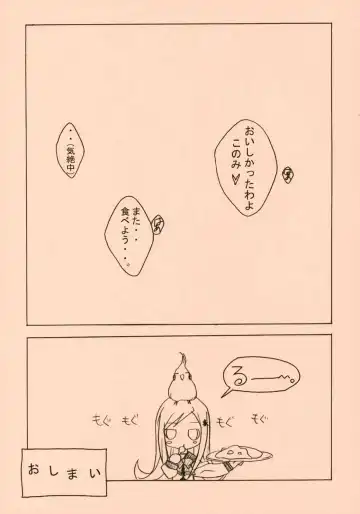 おいしかったわよ
このみ♥
また・・
食べよう・・。
・・(気絶中
るーーー。
もぐ
もぐ
もぐ
もぐ
おしまい